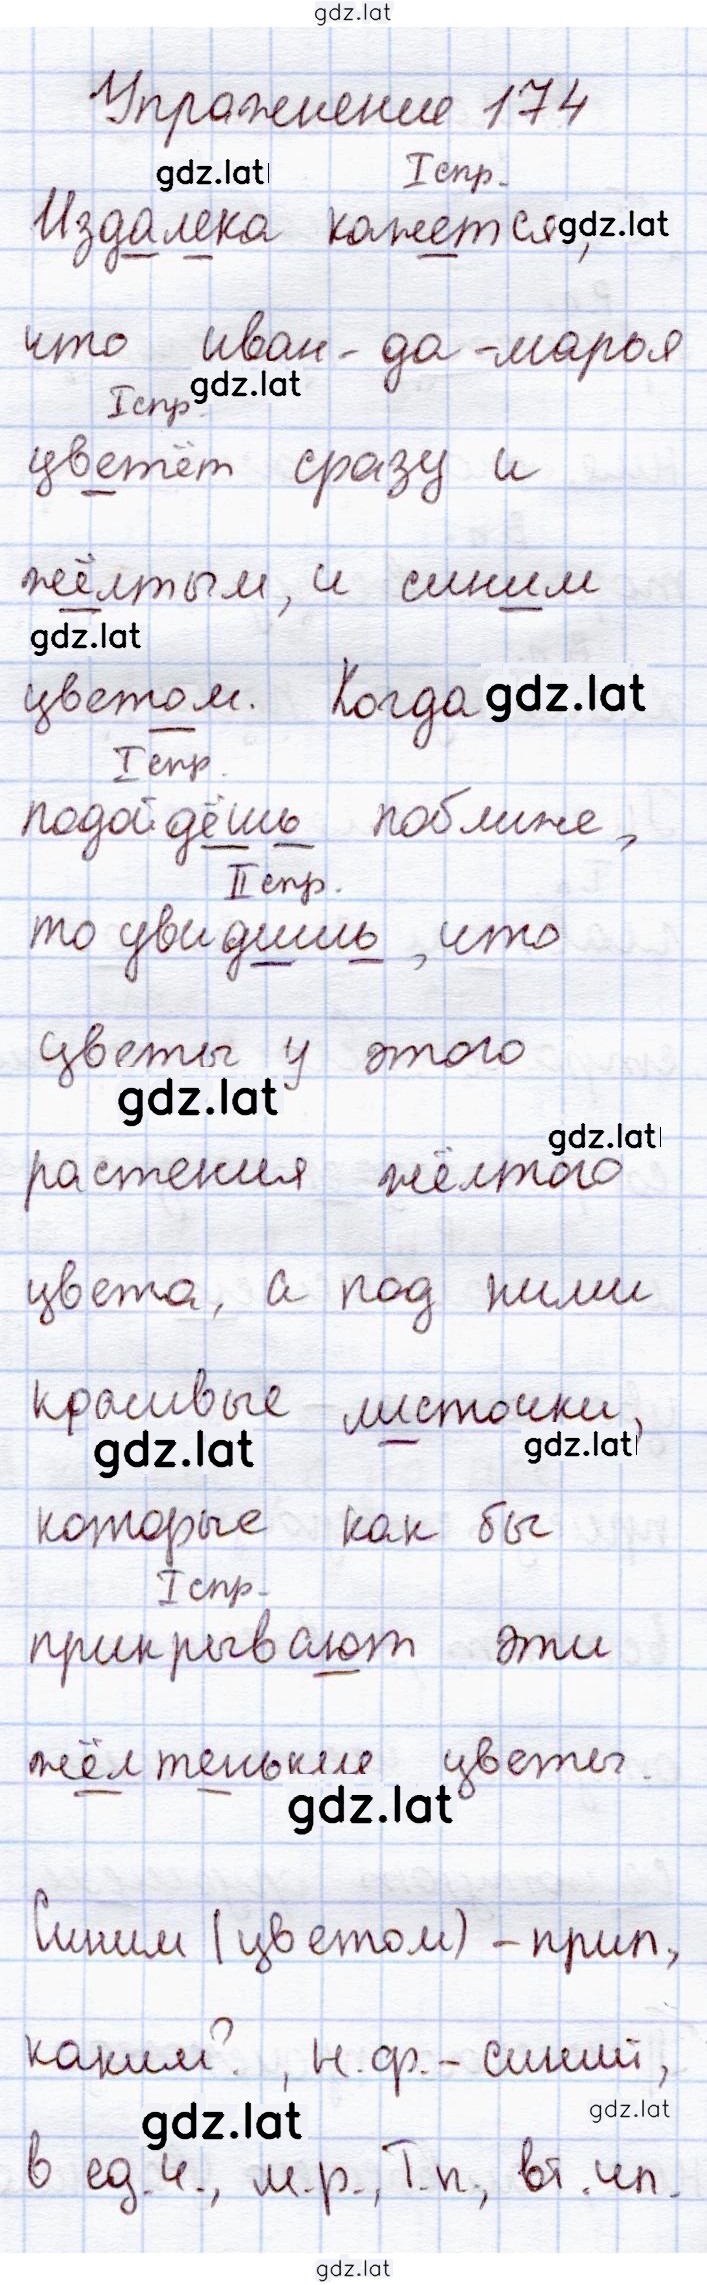 gdz.lat
Упражнение 174
gdz.lat
I спр.
Издалека кажется,
gdz.lat
что иван-да-марья
gdz.lat
I спр.
цветёт сразу и
жёлтым, и синим
gdz.lat
цветом. Когда
gdz.lat
I спр.
подойдёшь поближе,
II спр.
то увидишь, что
цветы у этого
gdz.lat
gdz.lat
растения жёлтого
цвета, а под ними
красивые листочки,
gdz.lat
gdz.lat
которые как бы
I спр.
прикрывают эти
жёлтенькие цветы.
gdz.lat
Синим (цветом) - прил,
каким?, н.ф. - синий,
gdz.lat
gdz.lat
в ед.ч., м.р., Т.п.,
gdz.lat